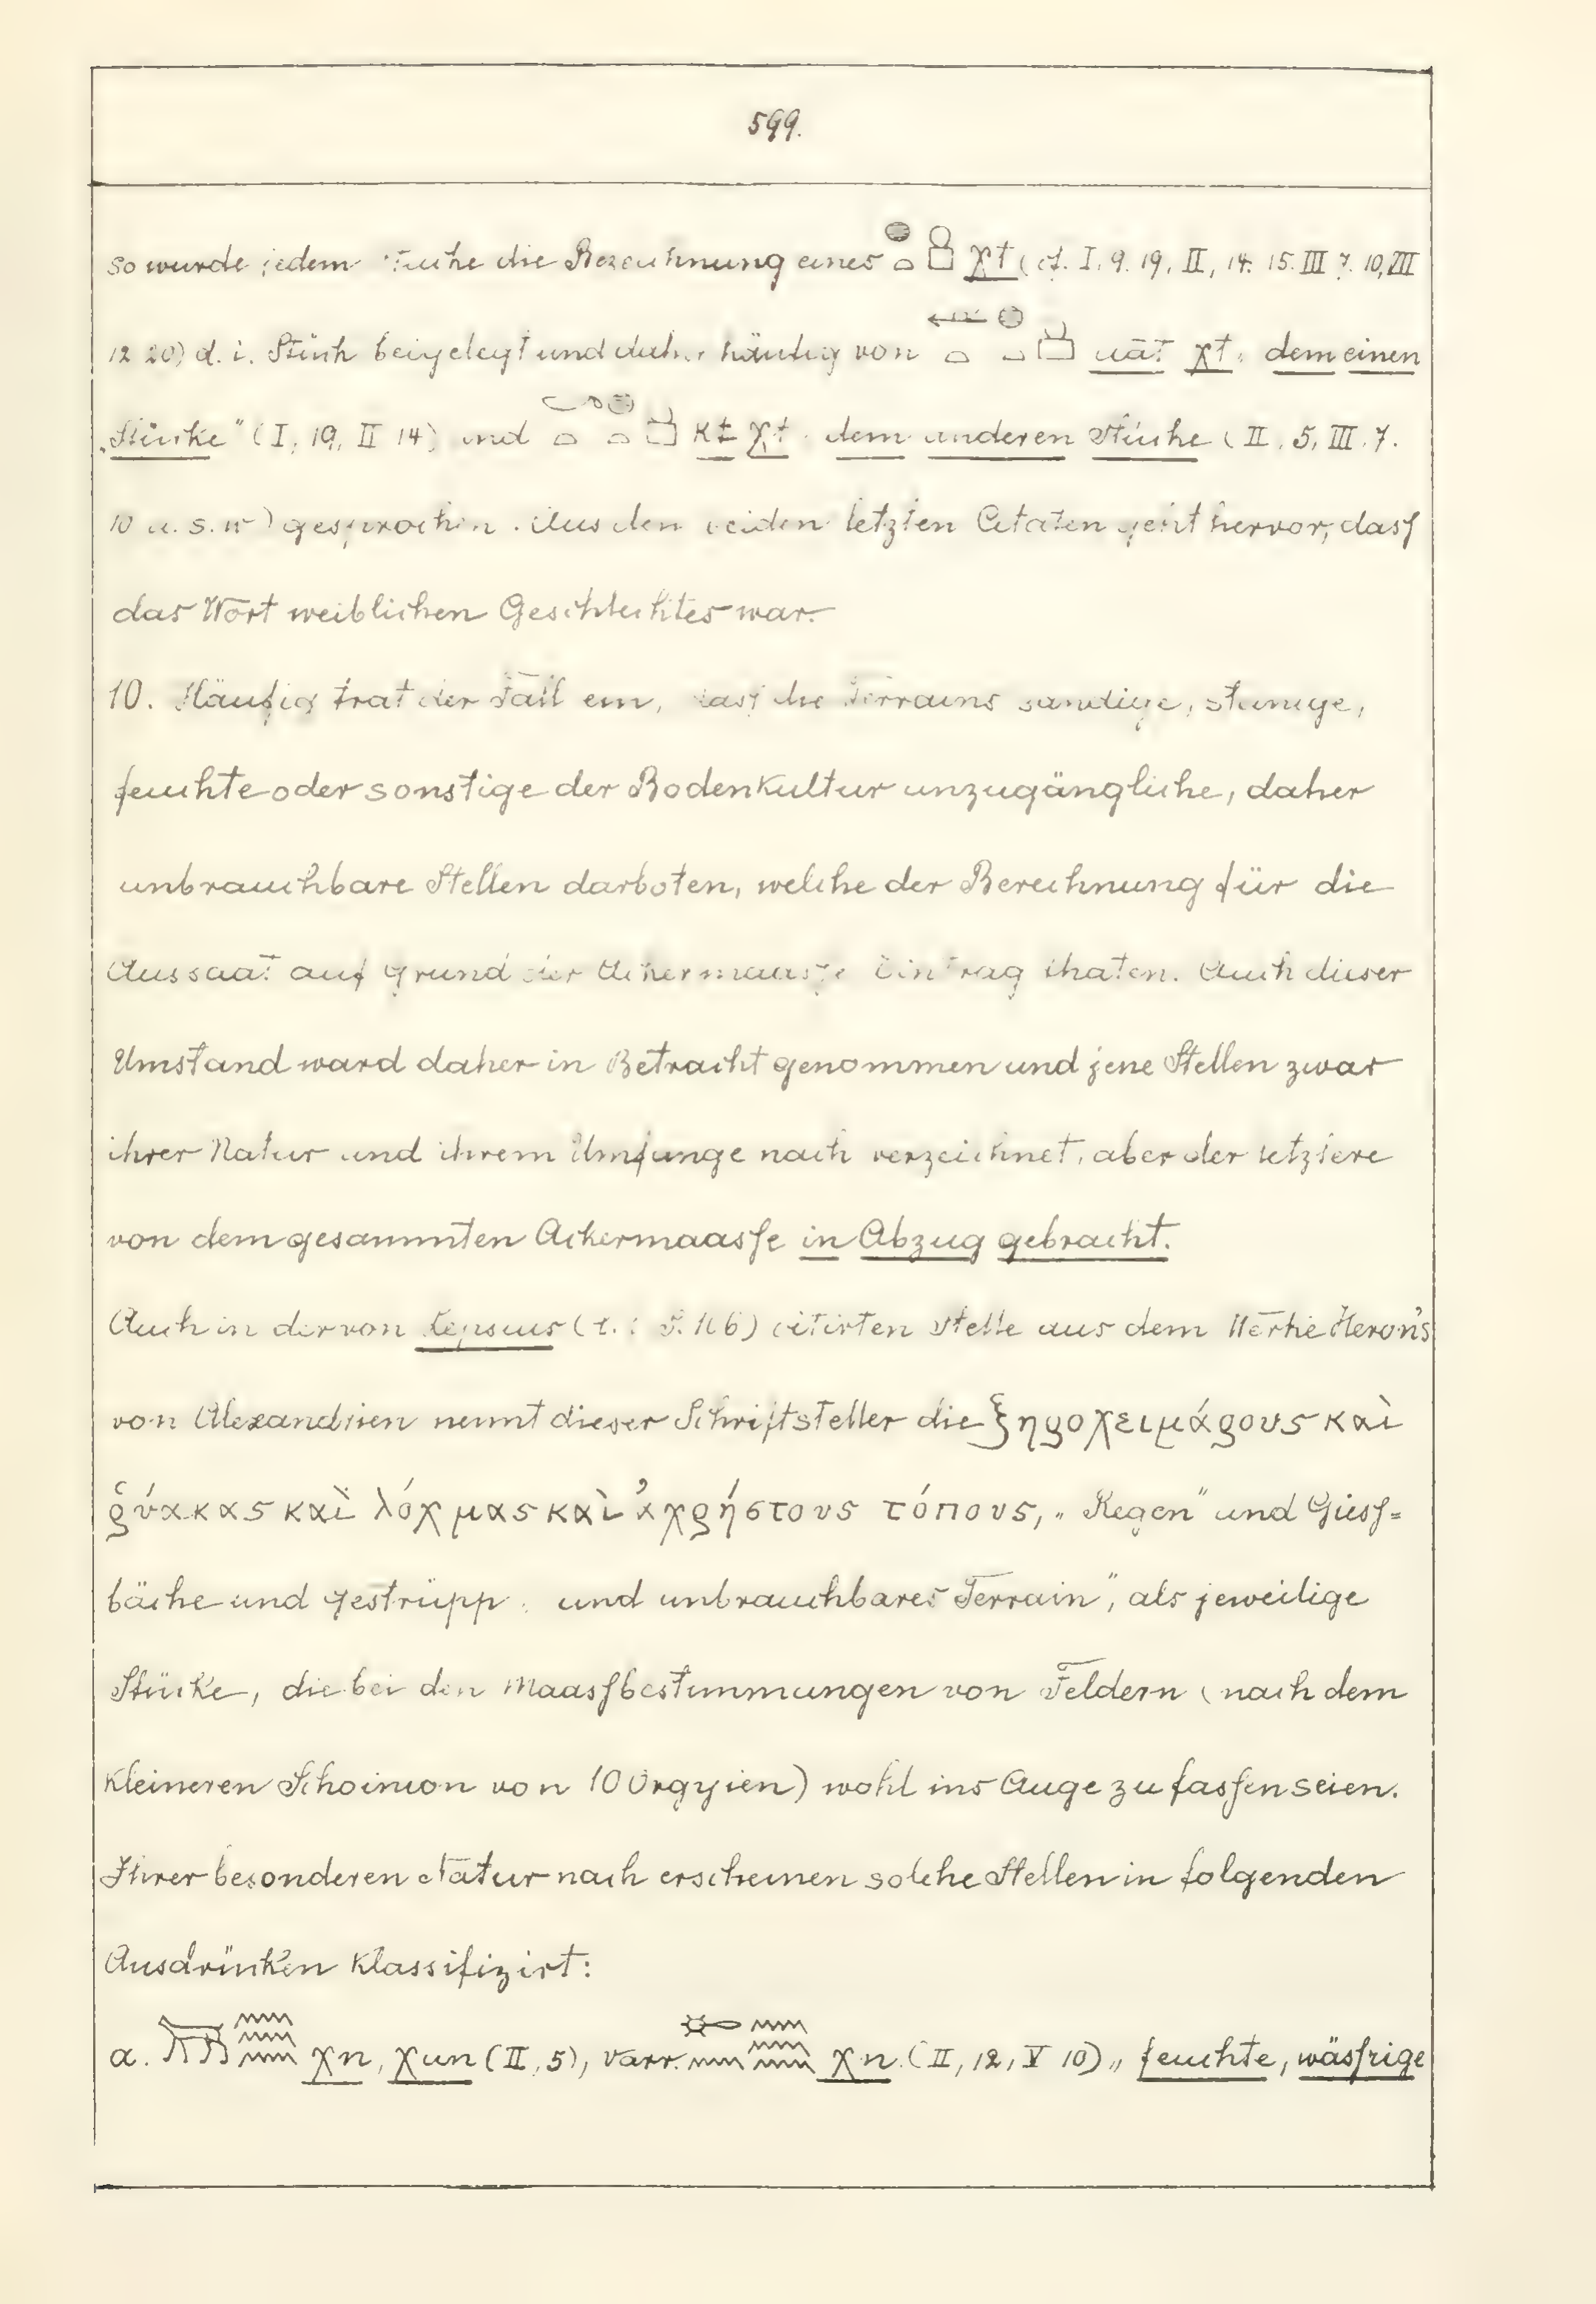 599.
so wurde jedem Stücke die Bezeichnung eines χt (cf. I, 9. 19, II, 14. 15. III 7. 10, VII
12 20) d. i. Stück beigelegt und daher häufig von uāt χt, dem einen
„Stücke" (I, 19, II 14) und kt χt dem anderen Stücke (II, 5, III, 7.
10 u. s. w) gesprochen. Aus den beiden letzten Citaten geht hervor, dass
das Wort weiblichen Geschlechtes war.
10. Häufig trat der Fall ein, dass die Terrains sandige, steinige,
feuchte oder sonstige der Bodenkultur unzugängliche, daher
unbrauchbare Stellen darboten, welche der Berechnung für die
Aussaat auf Grund der Ackermaasse Eintrag thaten. Auch dieser
Umstand ward daher in Betracht genommen und jene Stellen zwar
ihrer Natur und ihrem Umfange nach verzeichnet, aber der letztere
von dem gesammten Ackermaasse in Abzug gebracht.
Auch in der von Lepsius (l. l. S. 106) citirten Stelle aus dem Werke Heron's
von Alexandrien nennt dieser Schriftsteller die ξηροχειμάρους καὶ
ῥύακας καὶ λόχμας καὶ ἀχρήστους τόπους, „Regen" und Giess=
bäche und Gestrüpp und unbrauchbares Terrain", als jeweilige
Stücke, die bei den Maassbestimmungen von Feldern (nach dem
kleineren Schoinion von 10 Orgyien) wohl ins Auge zu fassen seien.
Ihrer besonderen Natur nach erscheinen solche Stellen in folgenden
Ausdrücken klassifizirt:
α. χn, χun (II, 5), varr. χn. (II, 12, V 10) „feuchte, wässrige